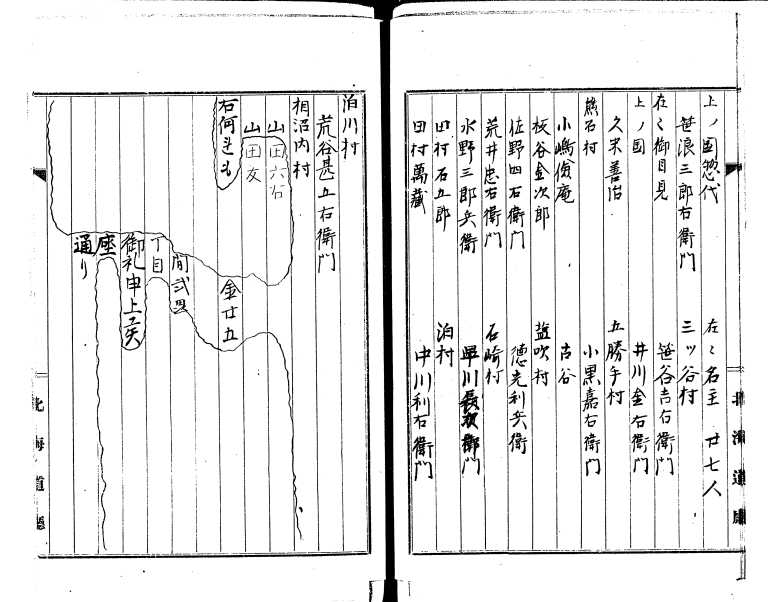 上ノ国惣代
笹浪三郎右衛門
在々御目見
上ノ国
久末善治
熊石村
小嶋俊庵
板谷金次郎
佐野四右衛門
荒井忠右衛門
水野三郎兵衛
田村石五郎
田村萬蔵
在々名主 廿七人
三ツ谷村
笹谷吉右衛門
井川金右衛門
五勝手村
小黒嘉右衛門
古谷
塩吹村
徳光利兵衛
石崎村
早川長次郎
泊村
中川利右衛門
北海道庁
泊川村
荒谷甚五右衛門
相沼内村
山田六右
山田友
右何れも
金廿五
間弐
丁目
御礼申上矣
座
通り
北海道廳